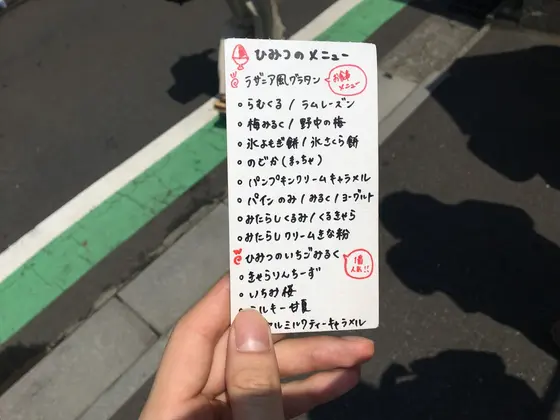 ひみつのメニュー
ラザニア風グラタン
お食事メニュー
○らむくる / ラムレーズン
○梅みるく / 野中の梅
○氷よもぎ餅 / 氷さくら餅
○のどか(まっちゃ)
○パンプキンクリームキャラメル
○パインのみ / みるく / ヨーグルト
○みたらしくるみ / くるきゃら
○みたらしクリームきな粉
ひみつのいちごみるく
1番人気!!
○きゃらりんちーず
○いちみ桜
ルキー甘夏
ルミルクティーキャラメル